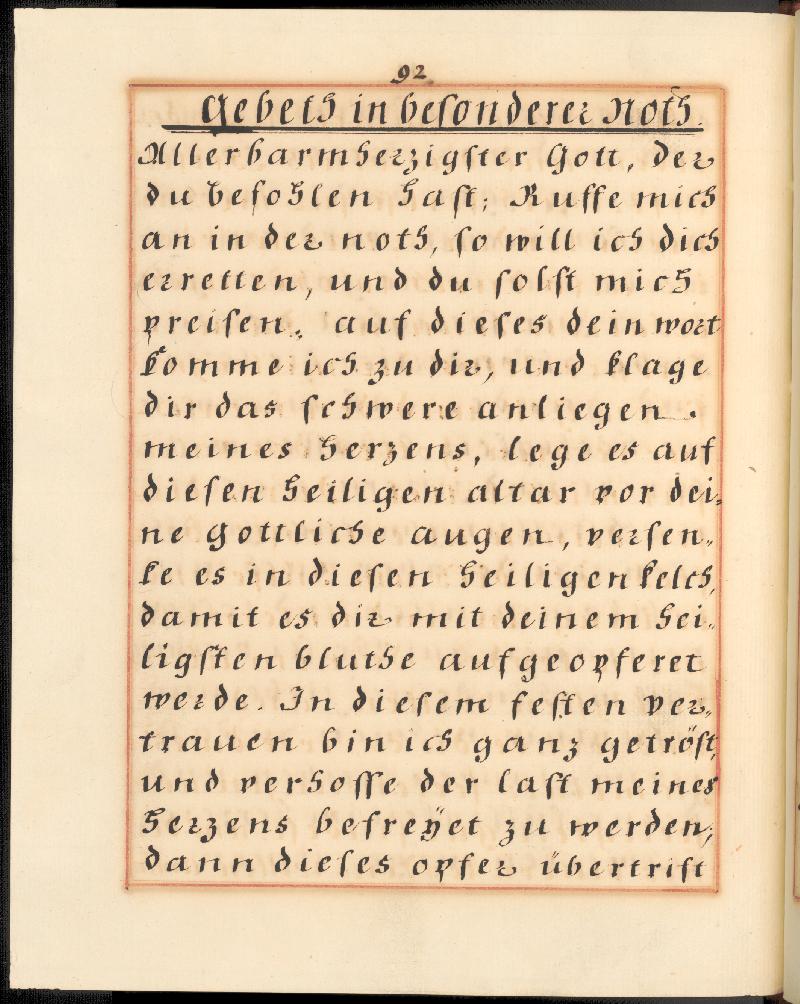 92
Gebeth in besonderer Noth.
Allerbarmherzigster Gott, der
du befohlen hast; Ruffe mich
an in der noth, so will ich dich
erretten, und du solst mich
preisen. auf dieses dein wort
komme ich zu dir, und klage
dir das schwere anliegen
meines herzens, lege es auf
diesen heiligen altar vor dei-
ne gottliche augen, versen-
ke es in diesen heiligen kelch,
damit es dir mit deinem hei-
ligsten bluthe aufgeopferet
werde. In diesem festen ver-
trauen bin ich ganz getröst,
und verhoffe der last meines
herzens befreÿet zu werden,
dann dieses opfer übertrift